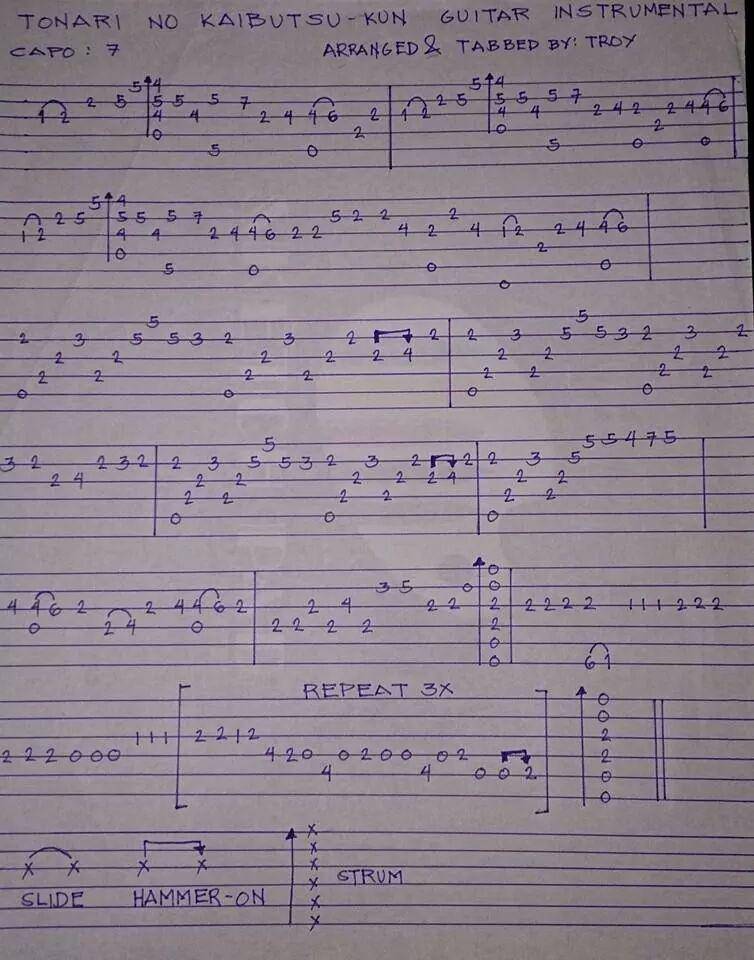 TONARI NO KAIBUTSU-KUN GUITAR INSTRUMENTAL
CAPO: 7 ARRANGED & TABBED BY: TROY
5 4 5 4
2 5 5 5 5 7 2 5 5 5 5 7
1 2 4 4 2 4 4 6 2 1 2 4 4 2 4 2 2 4 4 6
0 2 0 2
5 0 5 0 0
5 4
2 5 5 5 5 7 5 2 2 2
1 2 4 4 2 4 4 6 2 2 4 2 4 1 2 2 4 4 6
0 2
5 0 0 0
0
5 5
2 3 5 5 3 2 3 2 2 2 3 5 5 3 2 3 2
2 2 2 2 2 4 2 2 2 2
2 2 2 2 2 2 2 2
0 0 0 0
5 5 5 4 7 5
3 2 2 3 2 2 3 5 5 3 2 3 2 2 2 3 5
2 4 2 2 2 2 2 4 2 2
2 2 2 2 2 2
0 0 0
0
3 5 0 0
4 4 6 2 2 4 4 6 2 2 4 2 2 2 2 2 2 2 1 1 1 2 2 2
0 2 4 0 2 2 2 2 2
0
0 6 1
REPEAT 3X
0
0
1 1 1 2 2 1 2 2
2 2 2 0 0 0 4 2 0 0 2 0 0 0 2 2
4 4 0 0 2 0
0
x x x x x x x x x x
SLIDE HAMMER-ON STRUM